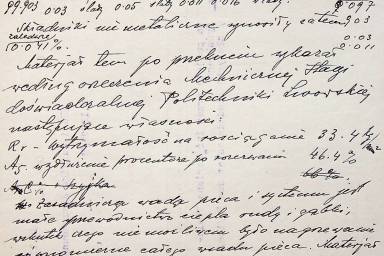 99,903 0.03 ślady 0.05 ślady 0.011 0.016 0.097
Składniki nie metaliczne wynosiły zatem 9.03
zaledwie 0.03
0.041% 0.011
Materjał ten po przekuciu wykazał
według orzeczenia Mechanicznej Stacji
doświadczalnej Politechniki Lwowskiej
następujące własności:
Rr - Wytrzymałość na rozciąganie 33.4 kg/mm²
A5 wydłużenie procentowe po rozerwaniu 46.4%
Zasadniczą wadą pieca i systemu jest
małe przewodnictwo ciepła rudy i gąbki,
wskutek czego niemożliwem było nagrzewanie
równomierne całego wsadu pieca. Materjał